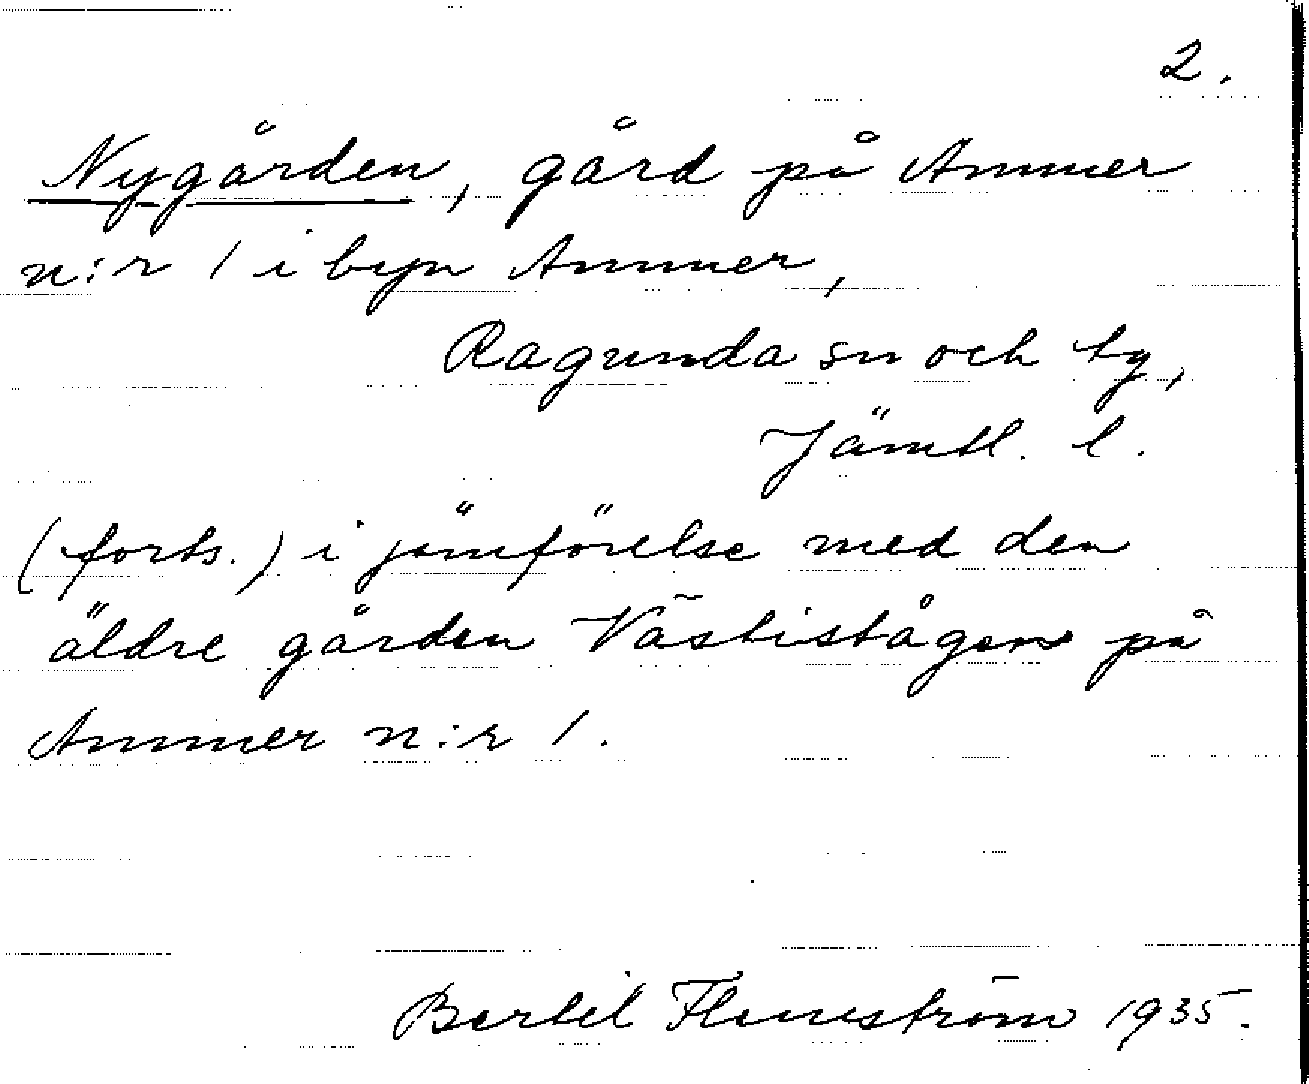 2.
Nygården, gård på Ammer
n:r 1 i byn Ammer,
Ragunda sn och by,
Jämtl. l.
(forts.) i jämförelse med den
äldre gården Västistågen på
Ammer n:r 1.
Bertil Flemström 1935.